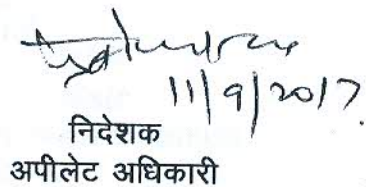 11/9/2017.
निदेशक
अपीलेट अधिकारी